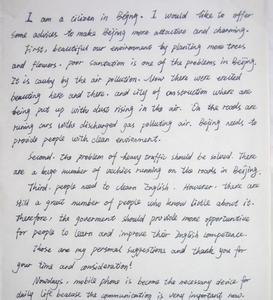 I am a citizen in Beijing. I would like to offer
some advices to make Beijing more attractive and charming.
First, beautiful our environment by planting more trees
and flowers. poor sanitation is one of the problems in Beijing.
It is by the air pollution. Now there were erected
beautying here and there. and city of construction where are
being put up with dust rising in the air. On the roads are
runing cars with discharged gas polluting air. Beijing needs to
provide people with clean environment.
Second. the problem of heavy traffic should be solved. There
are a huge number of vechies running on the roads in Beijing.
Third. people need to learn English. However. there are
still a great number of people who know little about it.
Therefore, the government should provide more opportunities
for people to learn and improve their English competence.
These are my personal suggestions and thank you for
your time and consideration!
Nowdays, mobile phone is become the necessary device for
daily life because the communication is very important now.